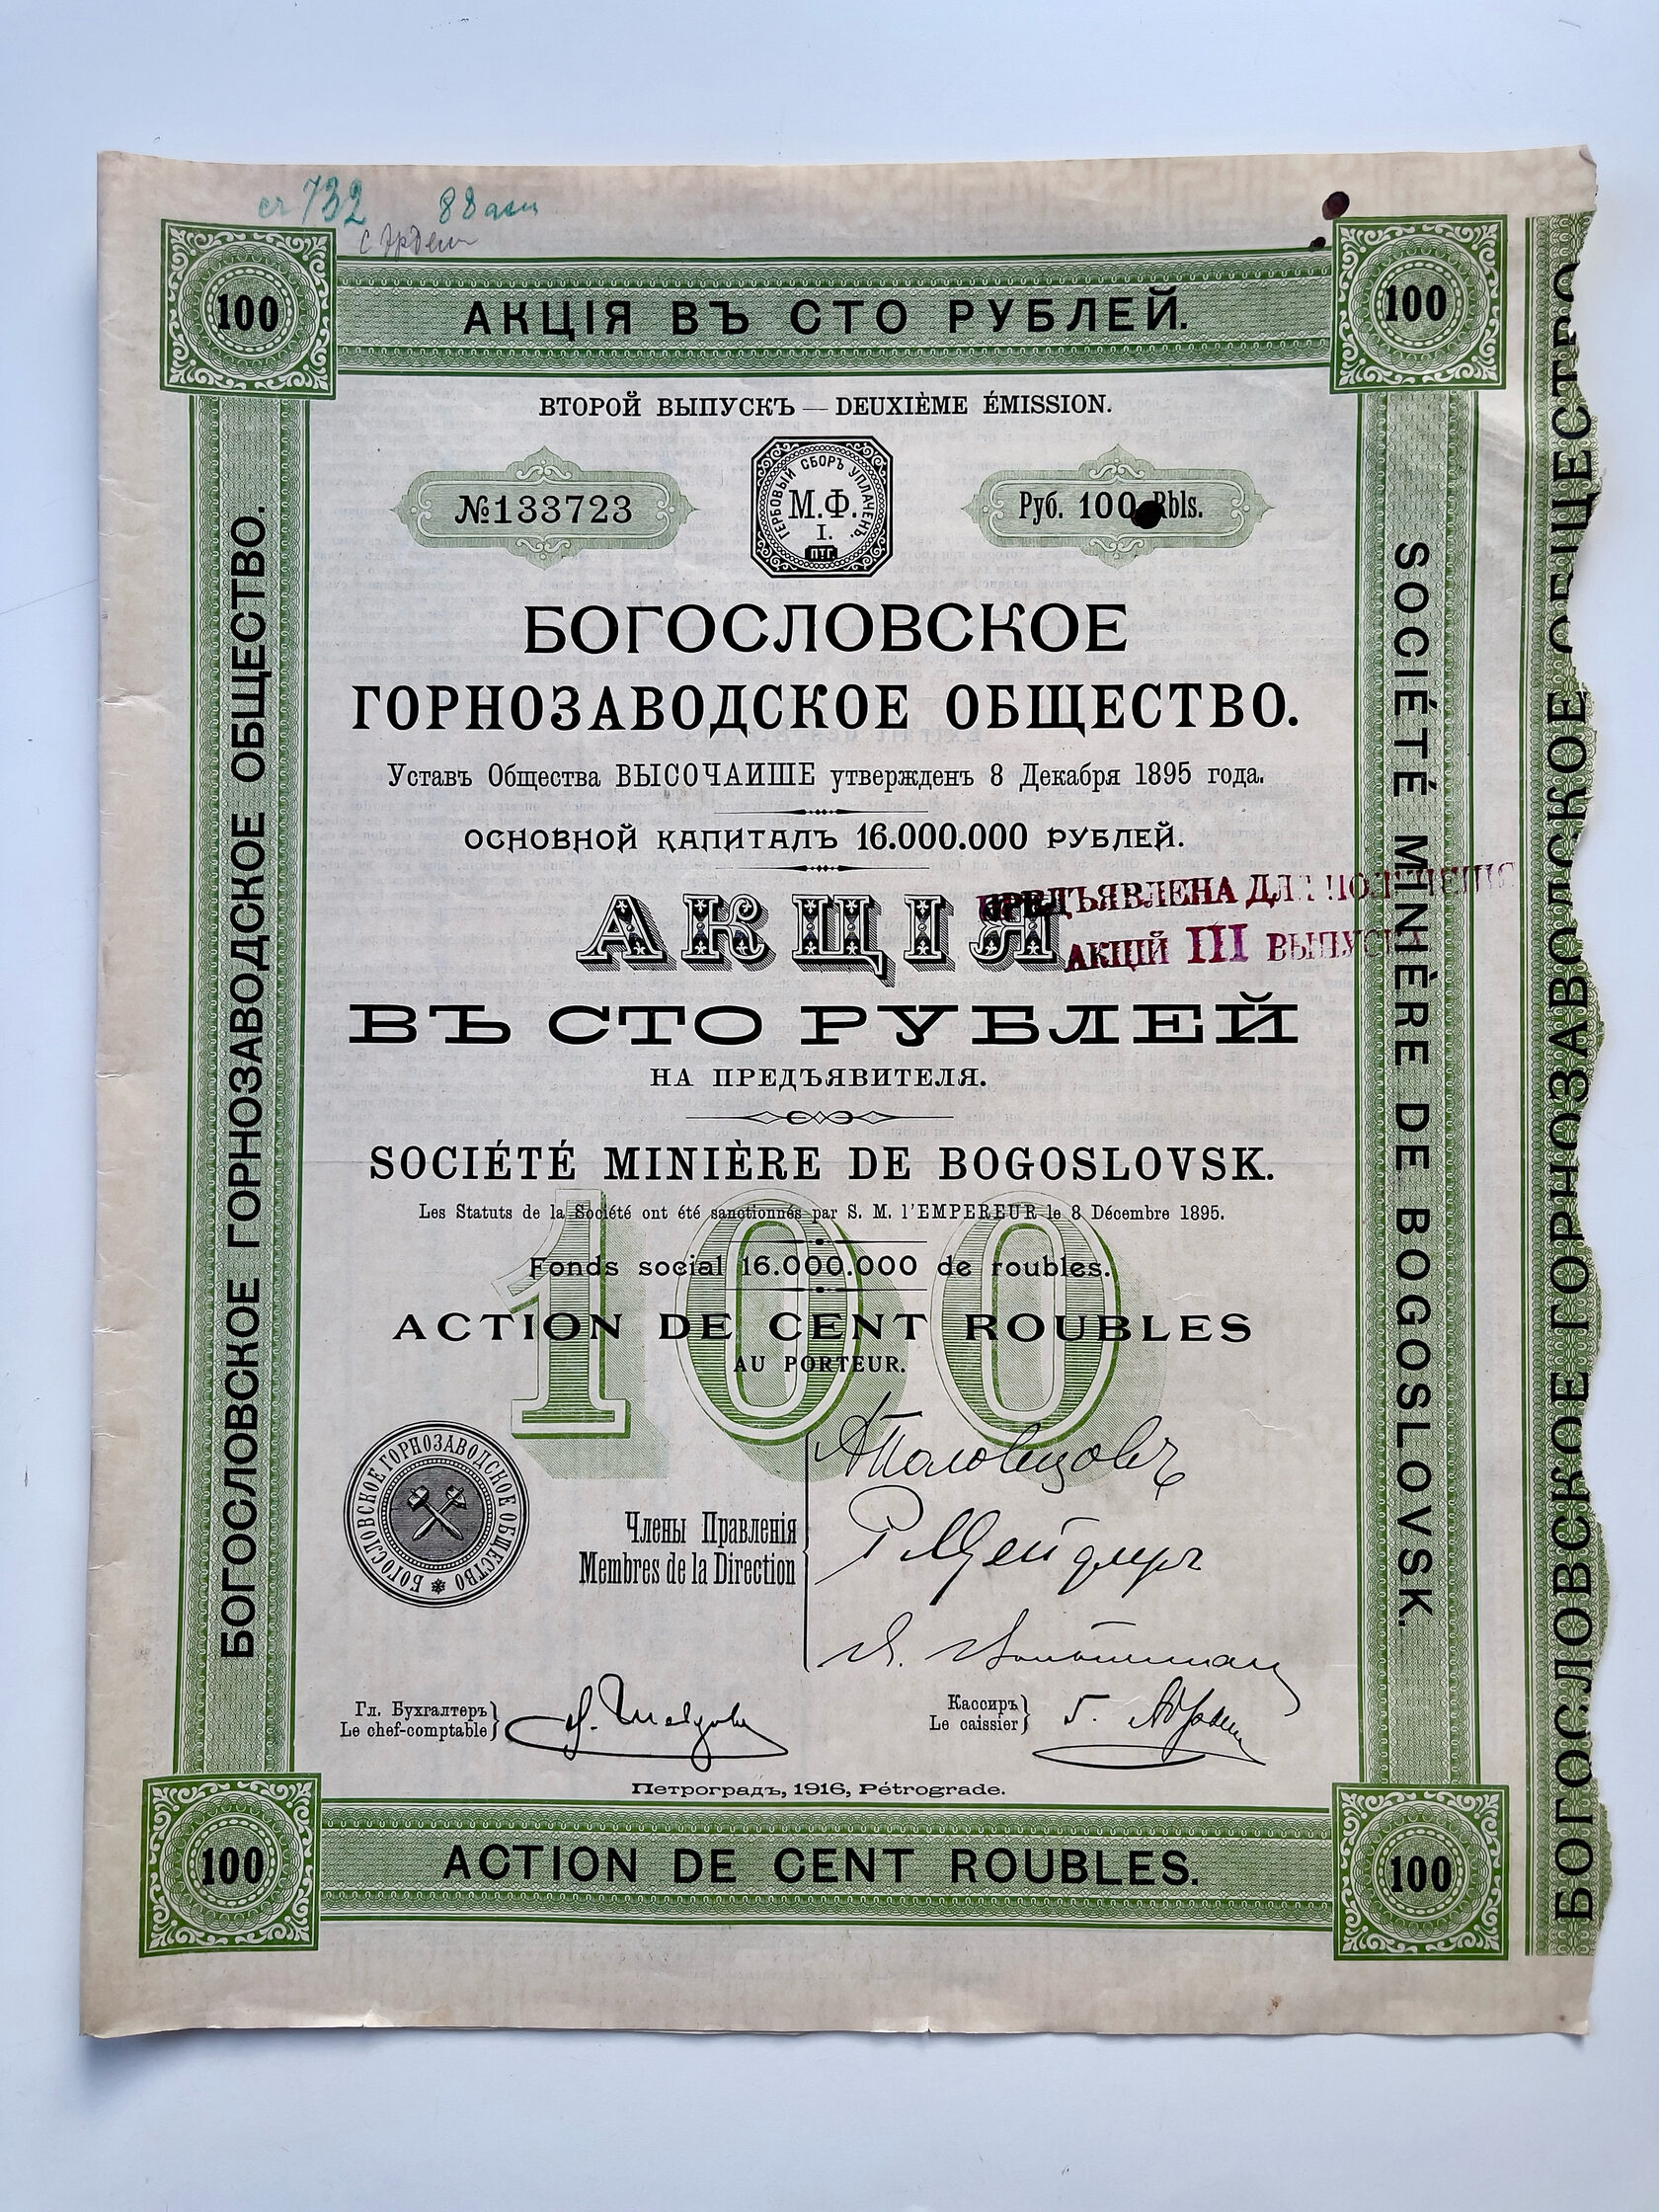 732 88
100
АКЦІЯ ВЪ СТО РУБЛЕЙ.
100
ВТОРОЙ ВЫПУСКЪ — DEUXIÈME ÉMISSION.
№133723
ГЕРБОВЫЙ СБОРЪ УПЛАЧЕНЪ.
М.Ф.
I.
ПТГ
Руб. 100 Rbls.
БОГОСЛОВСКОЕ
ГОРНОЗАВОДСКОЕ ОБЩЕСТВО.
Уставъ Общества ВЫСОЧАИШЕ утвержденъ 8 Декабря 1895 года.
ОСНОВНОЙ КАПИТАЛЪ 16.000.000 РУБЛЕЙ.
АКЦІЯ
ПРЕДЪЯВЛЕНА ДЛЯ ПОЛУЧЕНІЯ
АКЦІЙ III ВЫПУСКА
ВЪ СТО РУБЛЕЙ
НА ПРЕДЪЯВИТЕЛЯ.
SOCIÉTÉ MINIÈRE DE BOGOSLOVSK.
Les Statuts de la Société ont été sanctionnés par S. M. l'EMPEREUR le 8 Décembre 1895.
Fonds social 16.000.000 de roubles.
100
ACTION DE CENT ROUBLES
AU PORTEUR.
БОГОСЛОВСКОЕ ГОРНОЗАВОДСКОЕ ОБЩЕСТВО
Члены Правленія
Membres de la Direction
АПоловцовъ
Гл. Бухгалтеръ
Le chef-comptable
Кассиръ
Le caissier
Петроградъ, 1916, Pétrograde.
100
ACTION DE CENT ROUBLES.
100
БОГОСЛОВСКОЕ ГОРНОЗАВОДСКОЕ ОБЩЕСТВО.
SOCIÉTÉ MINIÈRE DE BOGOSLOVSK.
БОГОСЛОВСКОЕ ГОРНОЗАВОДСКОЕ ОБЩЕСТВО